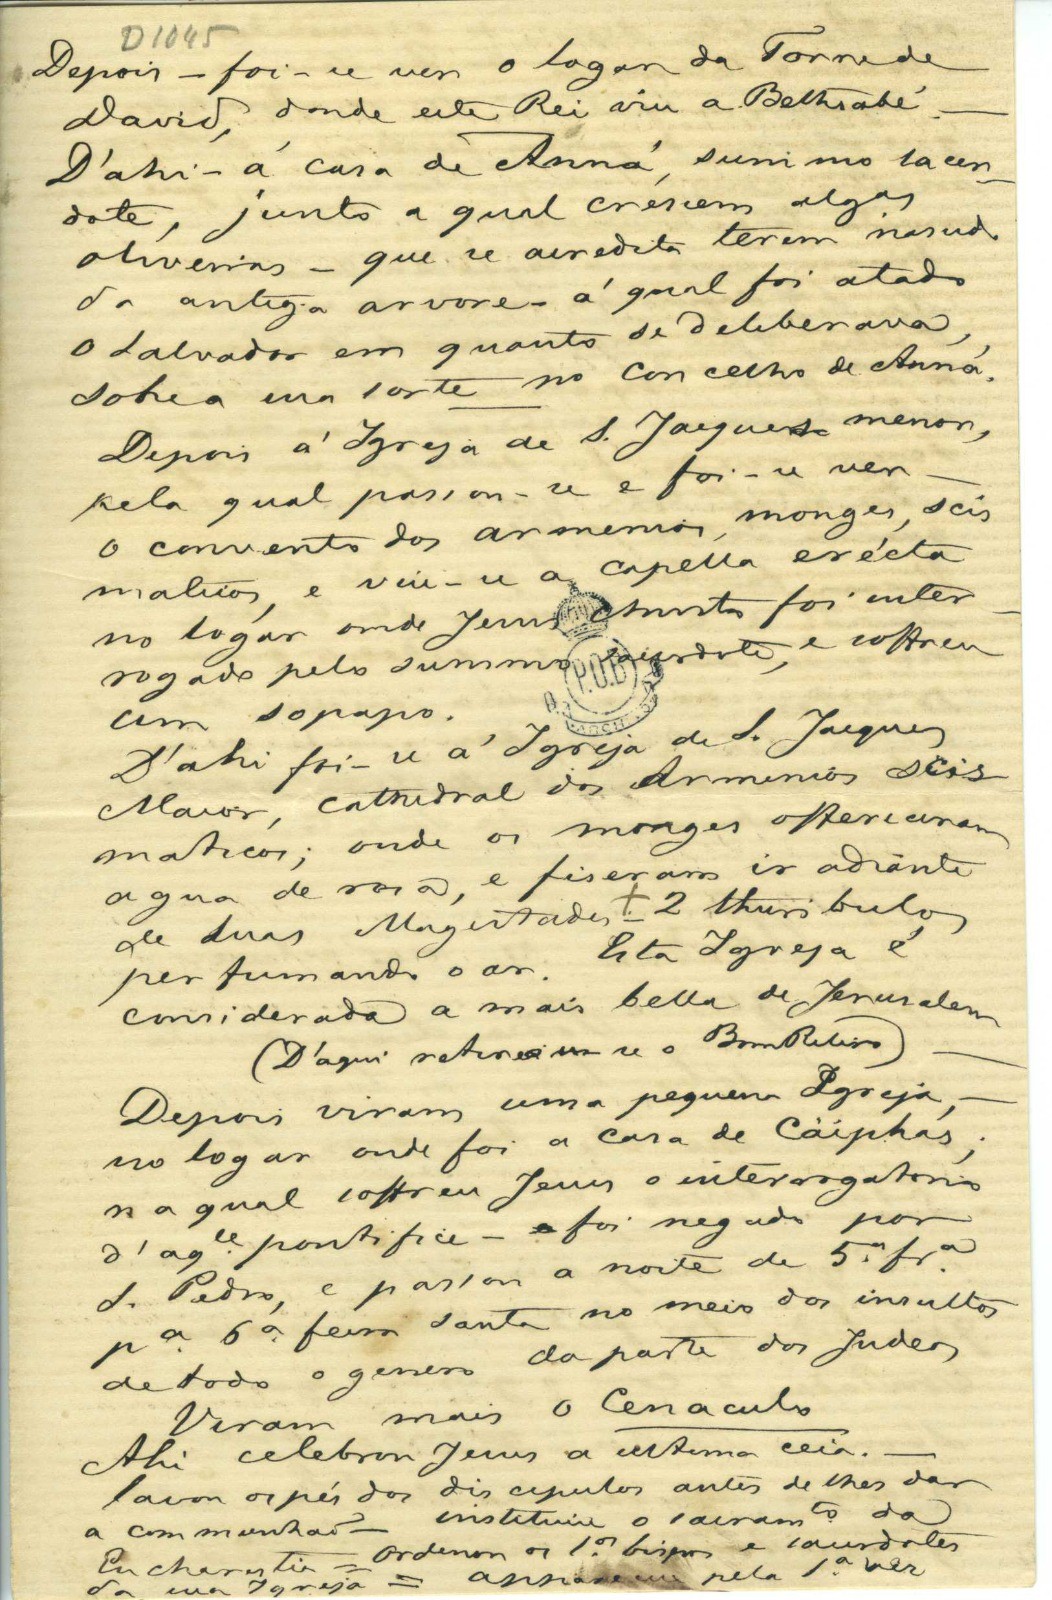 D1045
Depois - foi-se ver o logar da Torre de
David, donde este Rei viu a Bethsabé. —
D'ahi - á casa de Anná, summo sacer-
dote, junto a qual crescem algas
oliveiras - que se acredita terem nascido
da antiga arvore - á qual foi atado
o Salvador em quanto se deliberava,
sobre a sua sorte no concelho de Anná.
Depois á Igreja de S. Jacques menor,
pela qual passou-se e foi-se ver —
o convento dos armenios, monges, scis
maticos, e viu-se a capella erécta
no logar onde Jesus Christo foi inter-
rogado pelo summo sacerdote, e soffreu
um sopapo.
P.O.B
D'ahi foi-se á Igreja de S. Jacques
Maior, cathedral dos Armenios scis-
maticos; onde os monges offereceram
agua de rosa, e fiseram ir adiante
de Suas Magestades + 2 thuribulos
perfumando o ar. Esta Igreja é
considerada a mais bella de Jerusalem
(D'aqui retirou-se o Bom Retiro) —
Depois viram uma pequena Igreja, —
no logar onde foi a casa de Cáiphás;
na qual soffreu Jesus o interrogatorio
d'aqle. pontifice - foi negado por
S. Pedro, e passou a noite de 5ª. frª.
pª. 6ª. feira santa no meio dos insultos
de todo o genero da parte dos Judeos
Viram mais o Cenaculo
Ahi celebrou Jesus a ultima ceia. —
lavou os pés dos discipulos antes de lhes dar
a communhaõ - instituiu o sacramto. da
Eucharestia = ordenou os 1os. bispos e sacerdotes
da sua Igreja = appareceu pela 1ª. vez